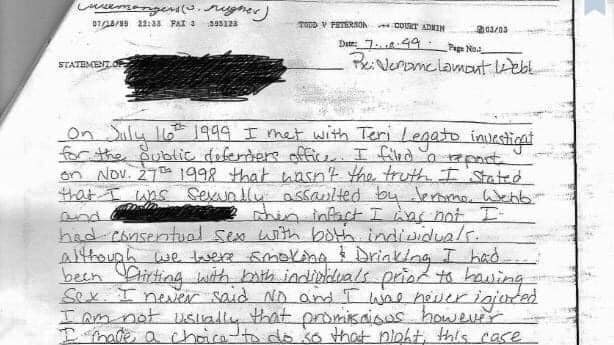 07/18/99 22:33 FAX 3 593123 TODD V PETERSON COURT ADMIN 03/03
Date: 7 99 Page No.:
STATEMENT OF
Re: Lamont Webb
On July 16th 1999 I met with Teri Legato investigat
for the public defenders office. I filed a report
on Nov. 27th 1998 that wasn't the truth. I stated
that I was sexually assaulted by Jerome Webb
and when infact I was not I
had consentual sex with both individuals.
although we were smoking & Drinking I had
been flirting with both individuals prior to having
sex. I never said NO and I was never injured
I am not usually that promiscious however
I made a choice to do so that night, this case